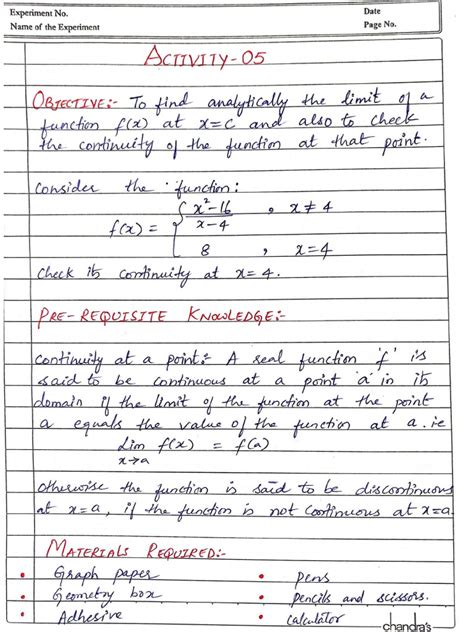 Experiment No.
Date
Name of the Experiment
Page No.
ACTIVITY-05
OBJECTIVE:- To find analytically the limit of a
function f(x) at x=c and also to check
the continuity of the function at that point.
Consider the function:
f(x) = { x²-16 / x-4 , x≠4
8 , x=4
Check its continuity at x=4.
PRE-REQUISITE KNOWLEDGE:-
Continuity at a point:- A real function 'f' is
said to be continuous at a point 'a' in its
domain if the limit of the function at the point
a equals the value of the function at a. ie
Lim f(x) = f(a)
x→a
Otherwise the function is said to be discontinuous
at x=a, if the function is not continuous at x=a
MATERIALS REQUIRED:-
• Graph paper • pens
• Geometry box • pencils and scissors.
• Adhesive • calculator
chandra's